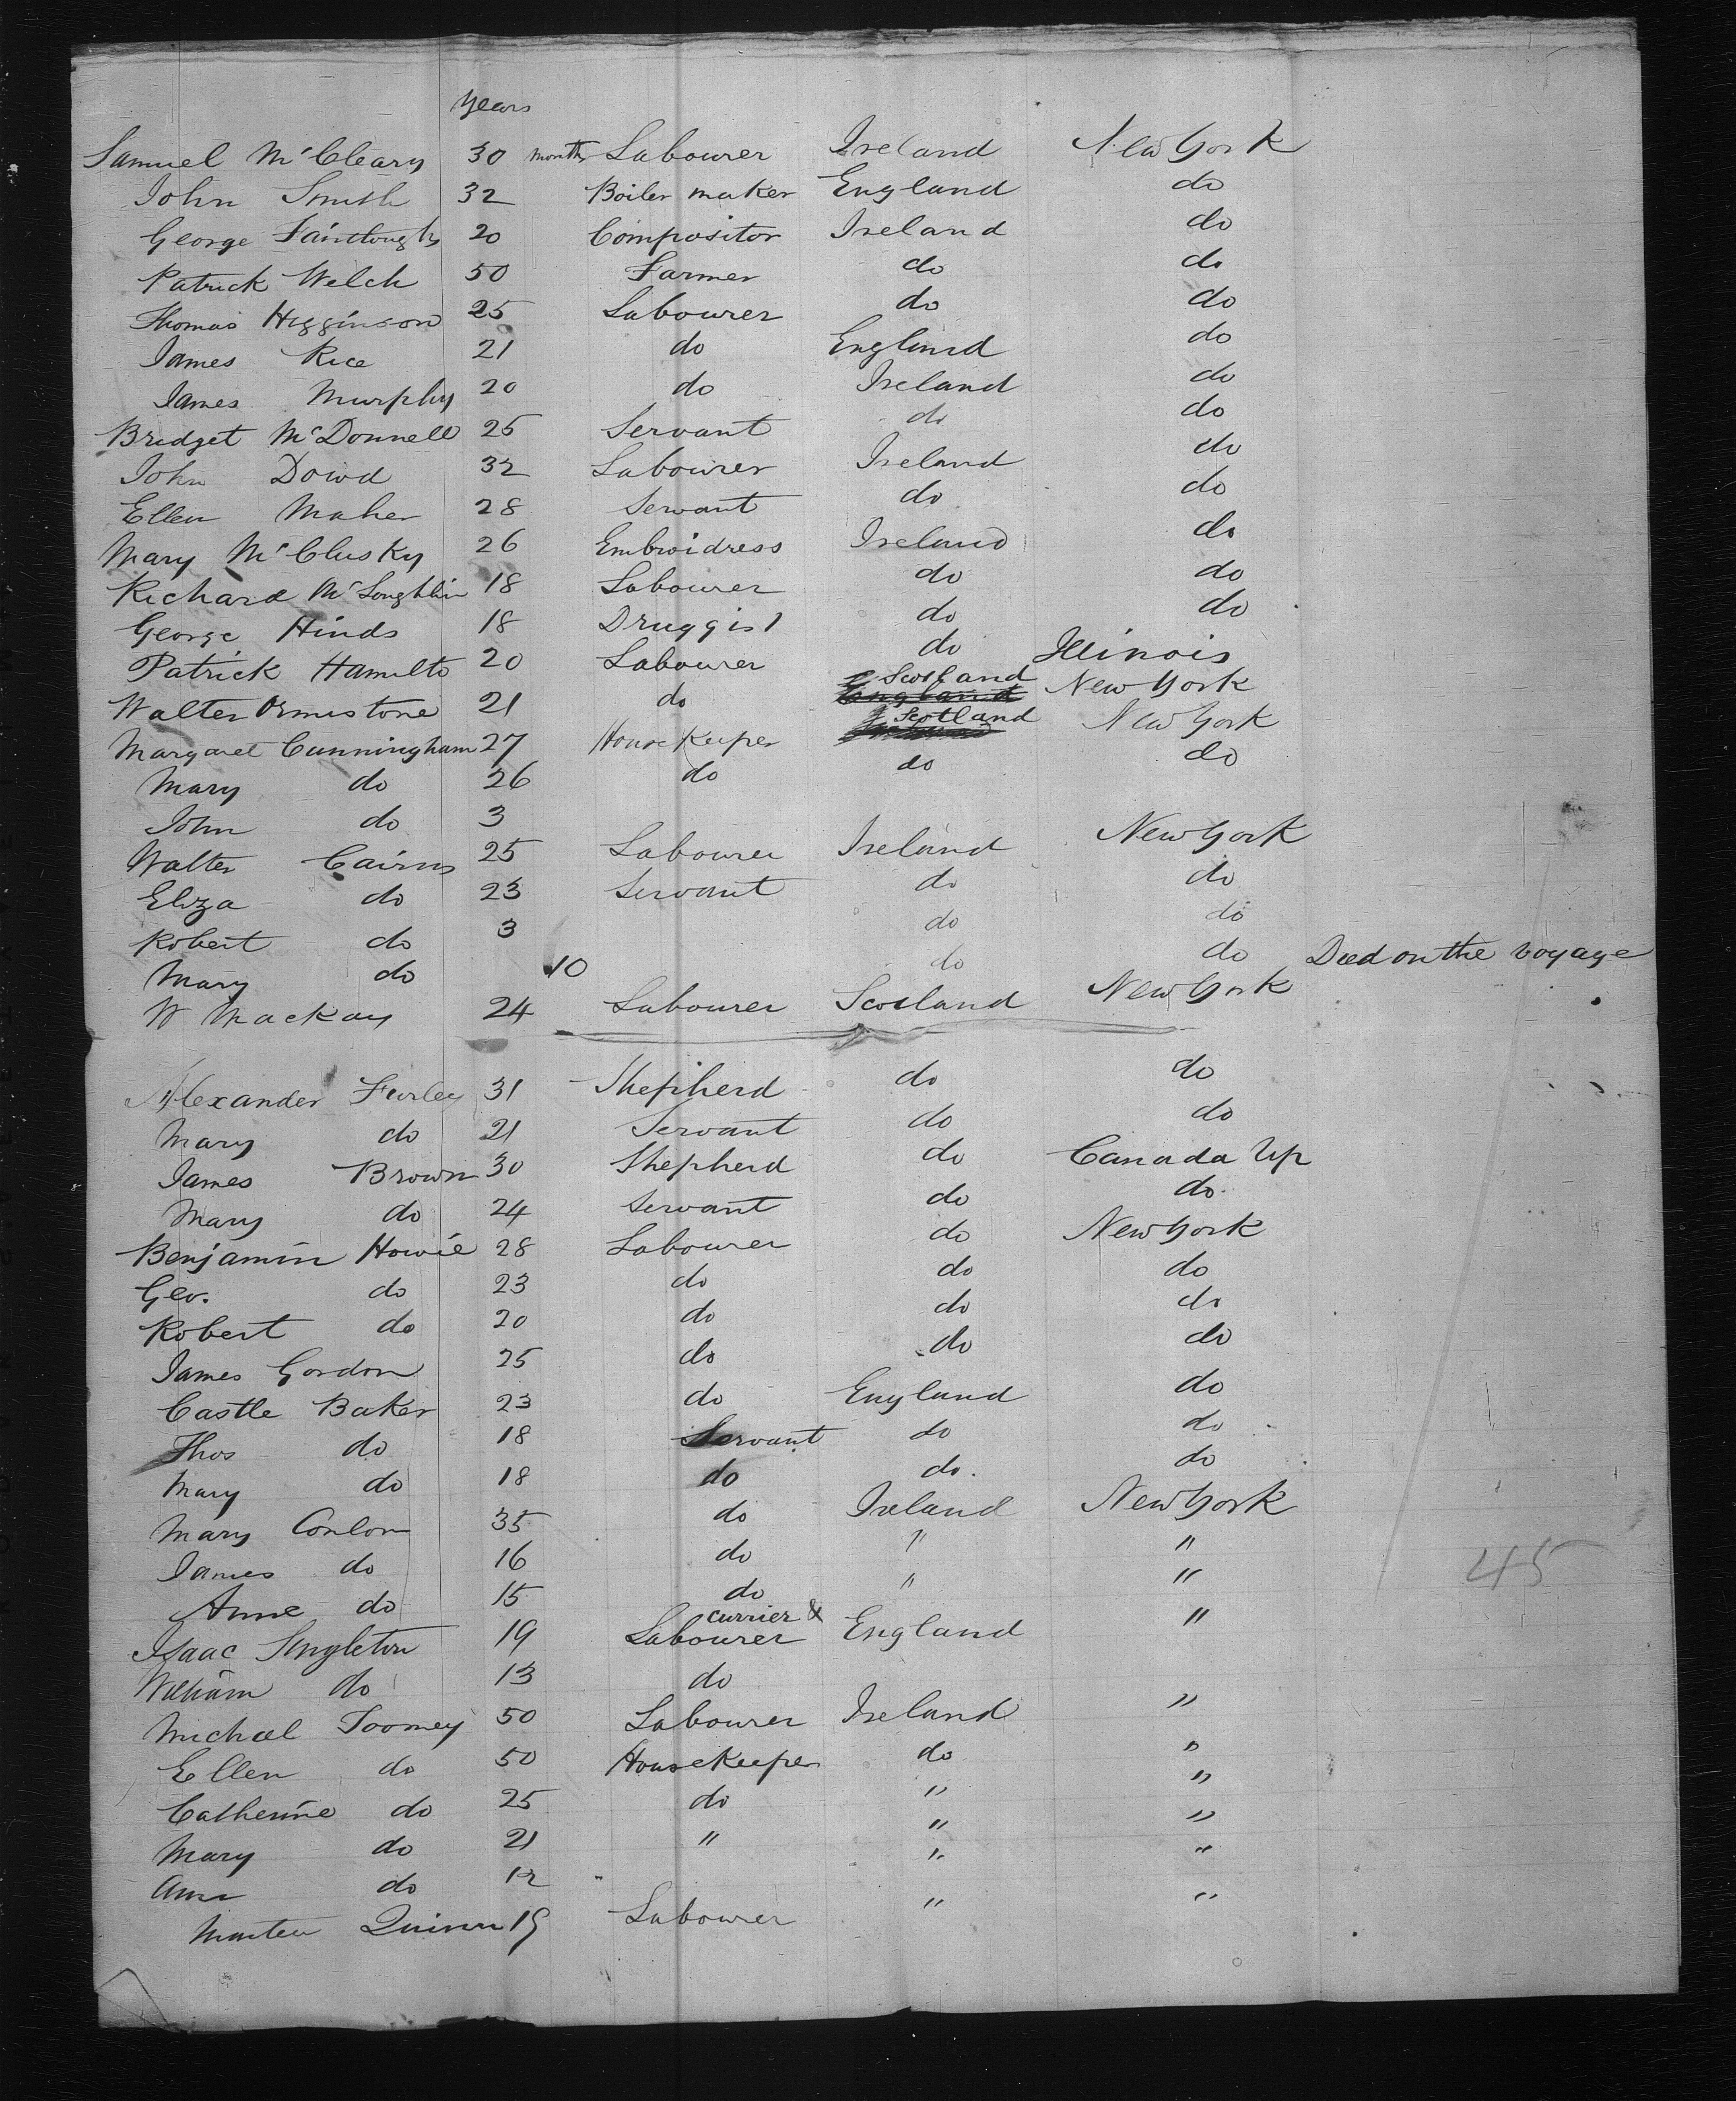 years
Samuel McCleary 30 months Labourer Ireland New York
John Smith 32 Boiler maker England do
George Fairclough 20 Compositor Ireland do
Patrick Welch 50 Farmer do do
Thomas Higginson 25 Labourer do do
James Rice 21 do England do
James Murphy 20 do Ireland do
Bridget McDonnell 25 Servant do do
John Dowd 32 Labourer Ireland do
Ellen Maher 28 Servant do do
Mary McClusky 26 Embroidress Ireland do
Richard McLoughlin 18 Labourer do do
George Hinds 18 Druggist do do
Patrick Hamilto 20 Labourer do Illinois
Walter Ormistone 21 do England Scotland New York
Margaret Cunningham 27 House Keeper Scotland New York
Mary do 26 do do do
John do 3
Walter Cairns 25 Labourer Ireland New York
Eliza do 23 Servant do do
Robert do 3 do do
Mary do 10 do do Died on the voyage
W Mackay 24 Labourer Scotland New York
Alexander Furley 31 Shepherd do do
Mary do 21 Servant do do
James Brown 30 Shepherd do Canada Up
Mary do 24 Servant do do
Benjamin Howie 28 Labourer do New York
Geo. do 23 do do do
Robert do 20 do do do
James Gordon 25 do do do
Castle Baker 23 do England do
Thos do 18 Servant do do
Mary do 18 do do. do
Mary Conlon 35 do Ireland New York
James do 16 do " "
Anne do 15 do " "
Isaac Singleton 19 currier & Labourer England "
William do 13 do
Michael Toomey 50 Labourer Ireland "
Ellen do 50 Housekeeper do "
Catherine do 25 do " "
Mary do 21 " " "
Ann do 12 " " "
Marten Quinn 19 Labourer " "
45